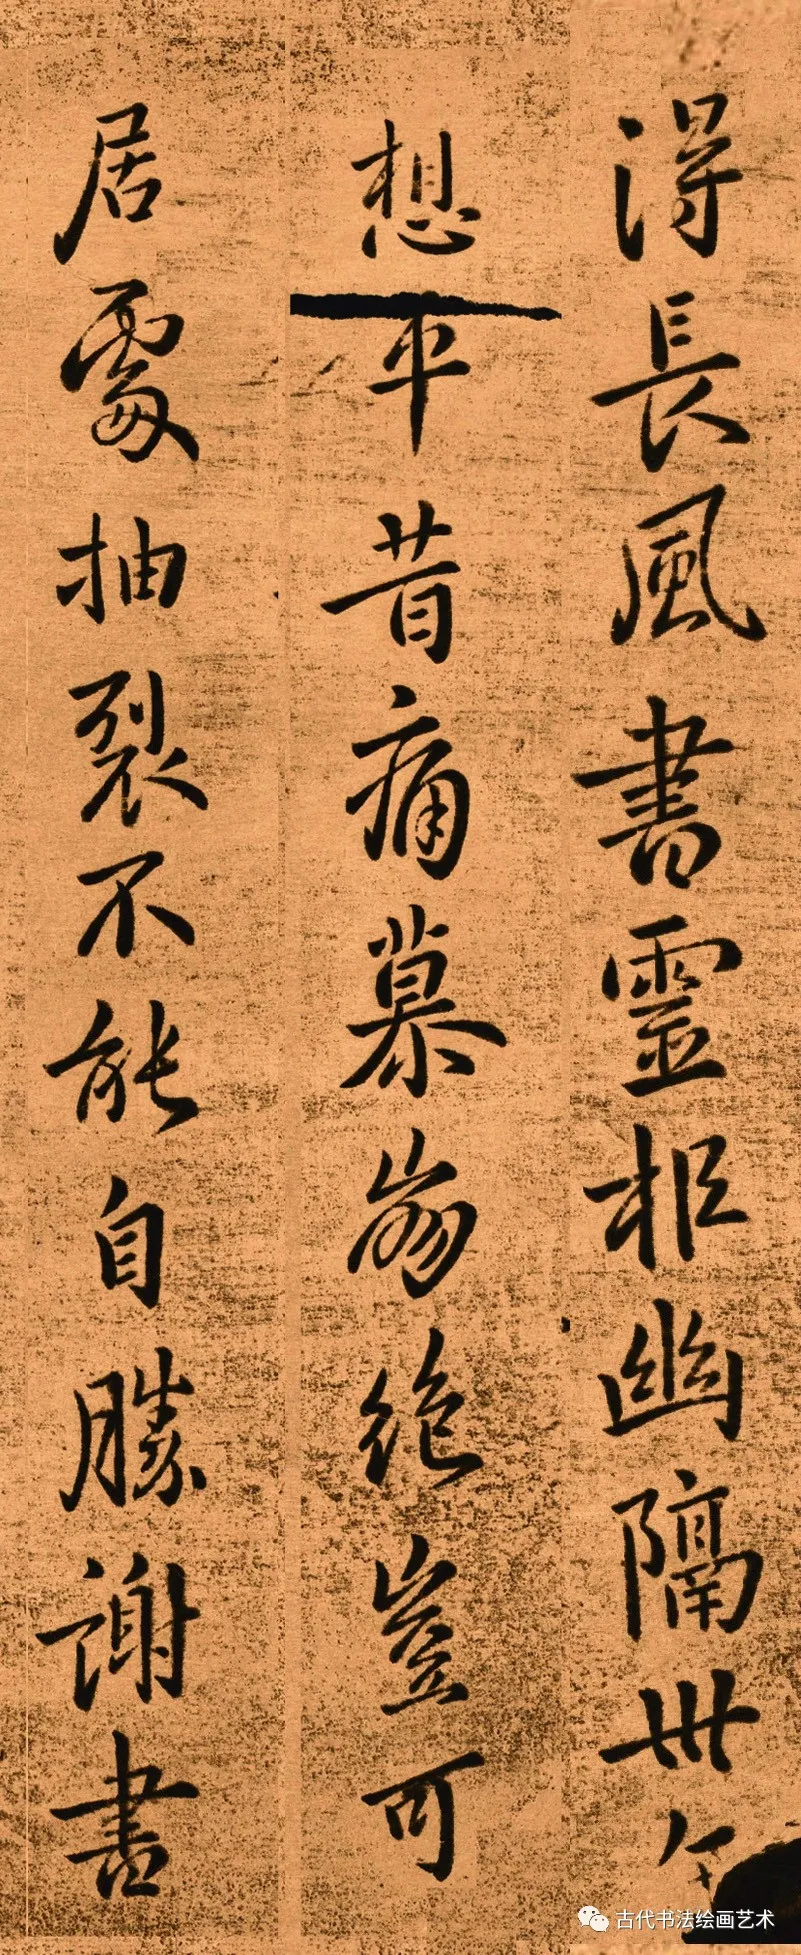 得長風書靈柩幽隔卅
想平昔痛慕崩絶豈可
居處抽裂不能自勝謝書
古代书法绘画艺术